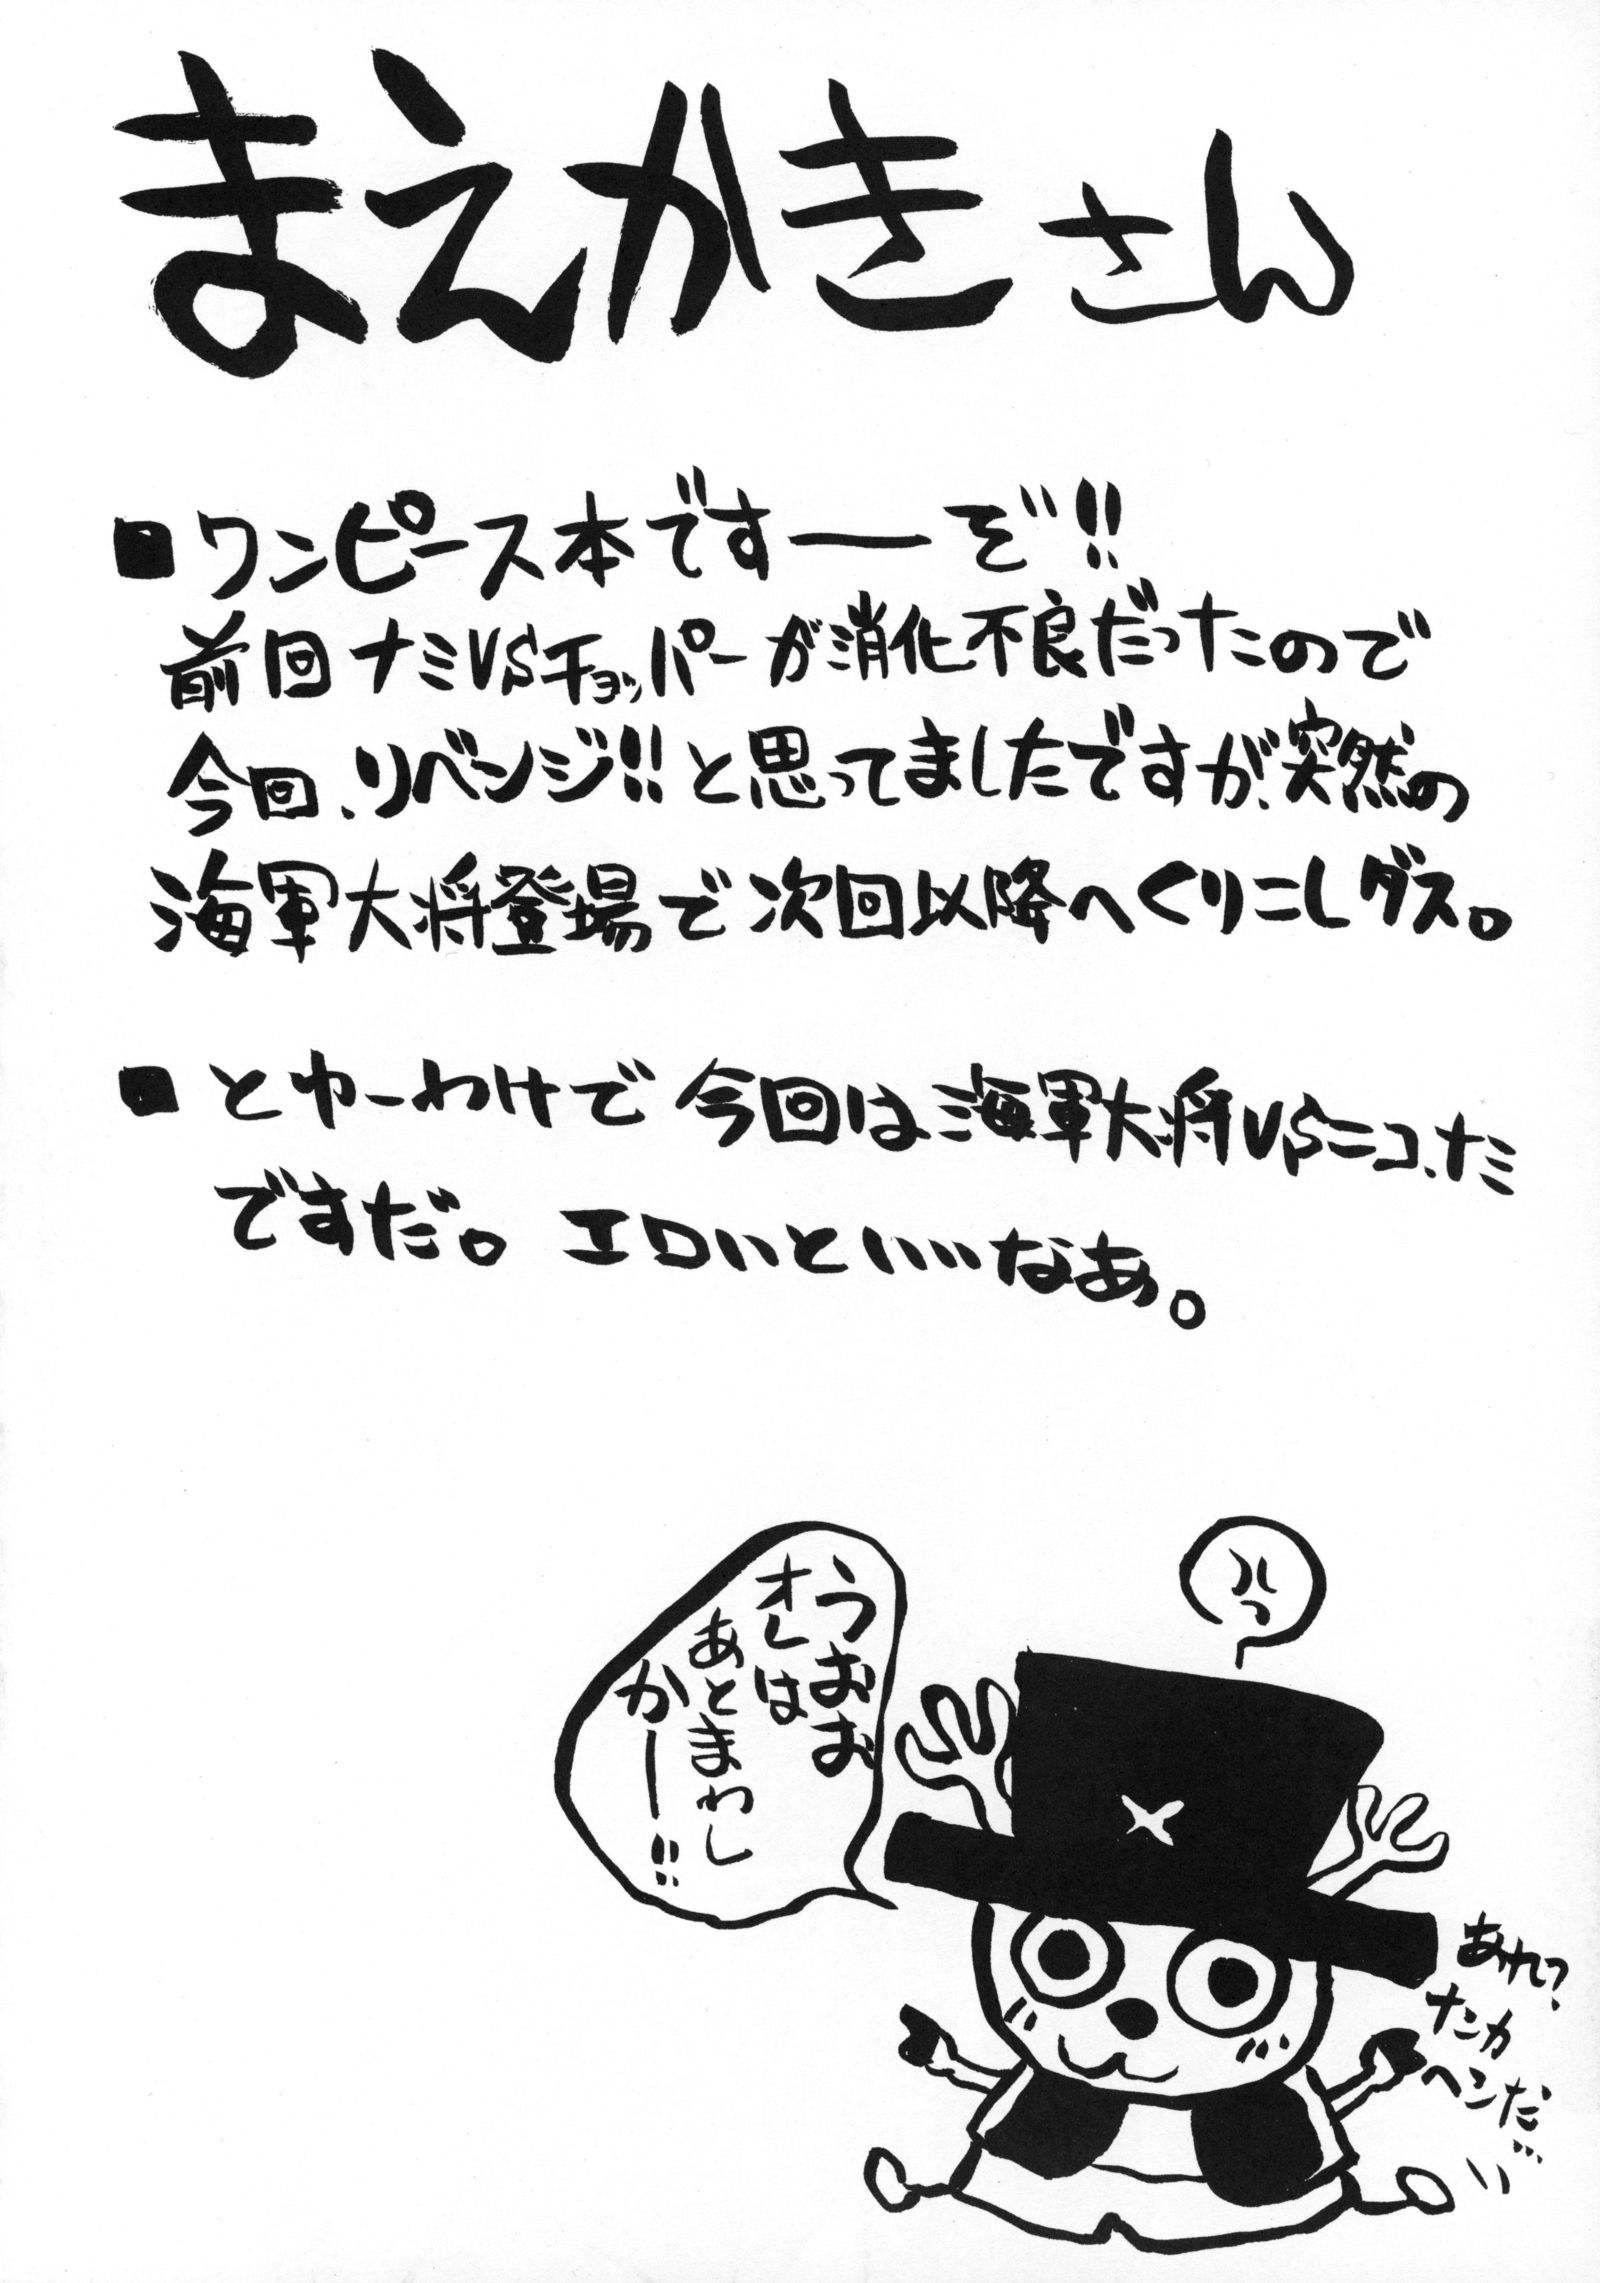 まえかきさん
■ワンピース本ですーーぞ!!
前回ナミVSチョッパーが消化不良だったので
今回、リベンジ!!と思ってましたですが、突然の
海軍大将登場で次回以降へくりこしダス。
■とゆーわけで今回は海軍大将VSニコ、ナミ
ですだ。エロいといいなあ。
うおお
オレは
あとまわし
かー!!
ハッ
あれ?
ナンカ
ヘンだ…